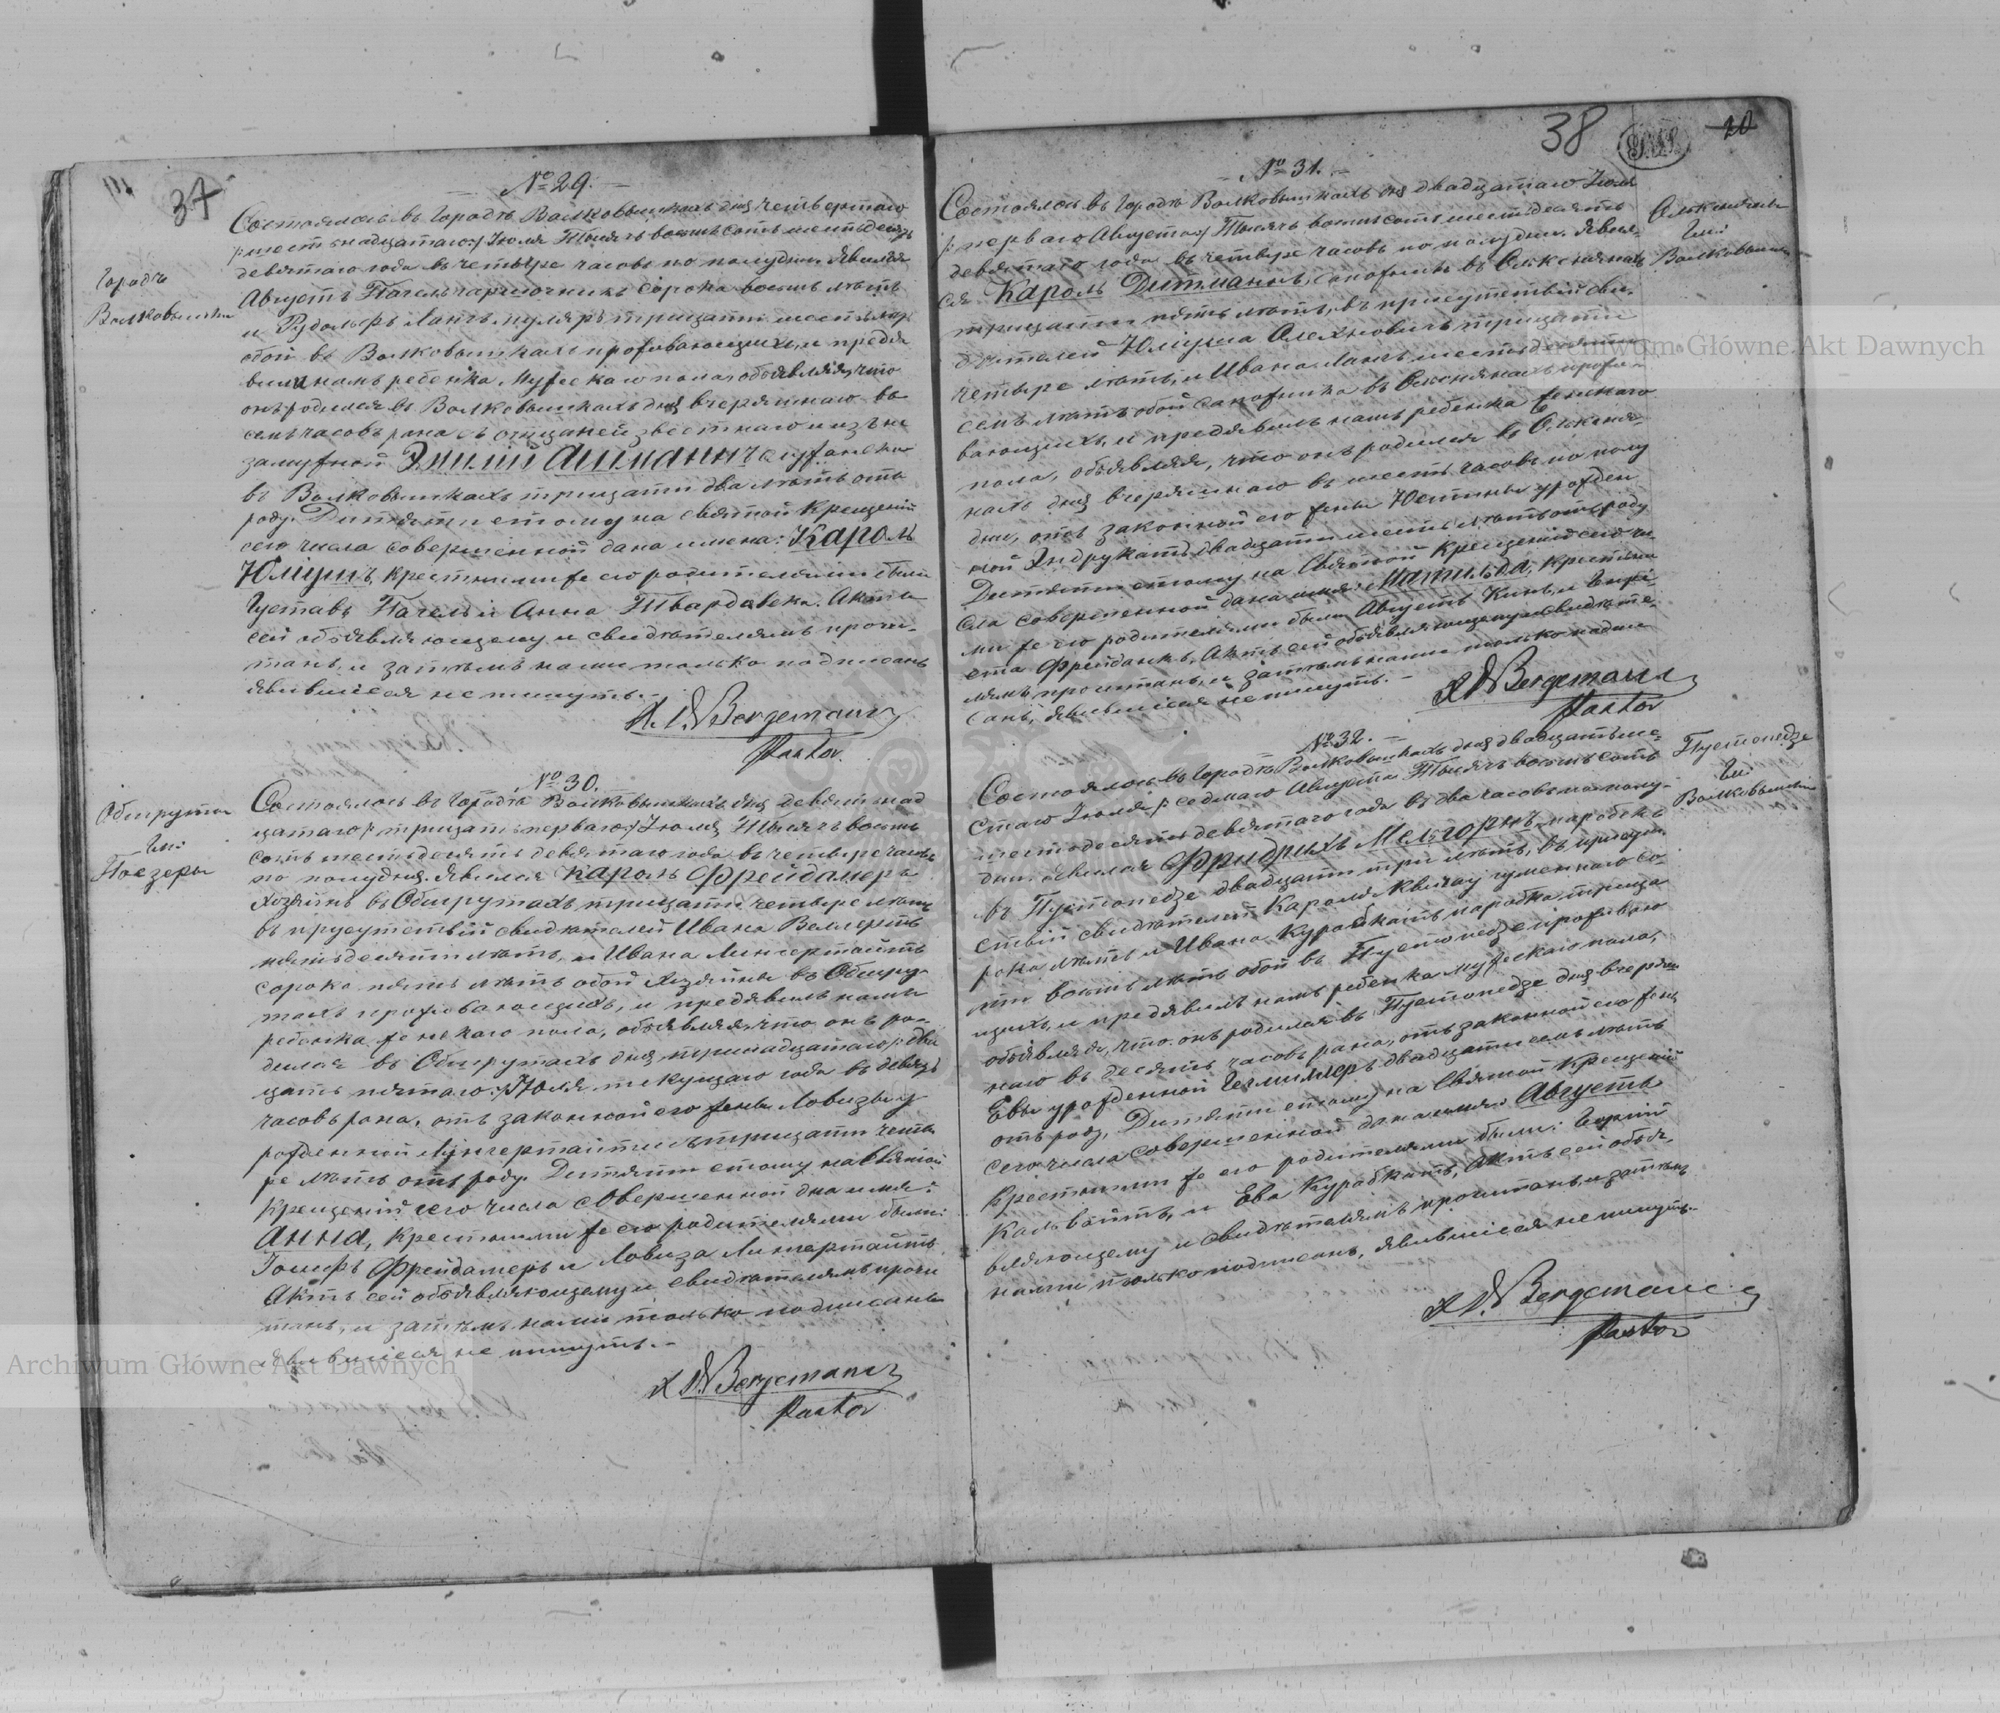 37
№ 29.
Городъ
Волковышки
Состоялось въ Городѣ Волковышкахъ дня четвертаго
/:шестьнадцатаго:/ Іюля Тысячъ восемьсотъ шестьдесятъ
девятаго года въ четыре часовъ по полудни. Явился
Августъ Пагель сорока восемь лѣтъ
и Рудольфъ Лангъ муляръ тридцати шесть лѣтъ
обой въ Волковышкахъ проживающихъ, и предъя
вили намъ ребенка мужескаго пола, объявляя, что
онъ родился въ Волковышкахъ дня вчерашнаго въ
семь часовъ рана съ отца неизвестнаго и изъ не
замужной Эмилій
въ Волковышкахъ тридцати два лѣтъ отъ
роду. Дитяти етому на святой Крещеній
сего числа совершенной дана имена: Кароль
Юліусъ, крестными же его родителями были
Густавъ Пагель и Анна Твардовска. Актъ
сей объявляющему и свидѣтелямъ прочи-
танъ, и затѣмъ нами только подписанъ
явившіеся не пишутъ.-
A. W. Bergemann
Pastor.
№ 30.
Обшруты
Гми:
Поезеры
Состоялось въ Городѣ Волковышкахъ дня девятьнад
цатаго /:тридцать перваго:/ Іюля Тысячъ восемь
сотъ шестьдесятъ девятаго года въ четыре часовъ
по полудня. Явился Кароль Фрейдамеръ
хозяинъ въ Обшрутахъ тридцати четыре лѣтъ
въ присутствій свидѣтелей Ивана Веллертъ
пятьдесяти лѣтъ, и Ивана Лингертайтъ
сорока пять лѣтъ обой хозяины въ Обшру-
тахъ проживающихъ, и предъявилъ намъ
ребенка женскаго пола, объявляя, что онъ ро-
дился въ Обшрутахъ дня тринадцатаго /:два
цать пятаго:/ Іюля текущаго года въ девять
часовъ рана, отъ законной его жены Ловизы у
рожденной Лингертайтисъ тридцати четы
ре лѣтъ отъ роду. Дитяти етому на Святой
Крещеній сего числа совершенной дна имя:
Анна, крестными же его родителями были:
Іосифъ Фрейдамеръ и Ловиза Лингертайтъ
Актъ сей объявляющему и свидѣтелямъ прочи
танъ, и затѣмъ нами только подписанъ
явившіеся не пишутъ.-
A. W. Bergemann
Pastor
38
20
№ 31.
Олькиняны
Гми:
Волковышки
Состоялось въ Городѣ Волковышкахъ дня двадцатаго Іюля
/:перваго Августа:/ Тысячъ восемьсотъ шестьдесятъ
девятаго года въ четыре часовъ по полудни. Явил-
ся Кароль Дитманъ,
тридцати пять лѣтъ, въ присутствій сви-
дѣтелей Юлиуша Олехновичъ тридцати
четыре лѣтъ, и Ивана Лангъ шестьдесяти
семь лѣтъ обой
вающихъ, и предъявилъ намъ ребенка женскаго
пола, объявляя, что онъ родился въ Олькиня-
нахъ дня вчерашнаго въ шесть часовъ по полу
дни, отъ законной его жены Юстины урожден
ной Эндрукатъ двадцати шесть лѣтъ отъ роду
Дитяти етому на Святой Крещеній сего чи-
сла совершенной дана имя: Матильда, крестны
ми же его родителями были Августъ Кинъ, и Генрі-
ета Фрейданкъ. Актъ сей объявляющему и свидѣте-
лямъ прочитанъ, и затѣмъ нами только подпи
санъ, явившіеся не пишутъ.-
A W Bergemann
Pastor
№ 32.
Пустопедзе
Гми:
Волковышки
Состоялось въ Городѣ Волковышкахъ дня двадцать ше-
стаго Іюля /:седмаго Августа Тысячъ восемьсотъ
шестьдесятъ девятаго года въ два часовъ по полу-
дни. Явился Фридрихъ Мельгорнъ, паробекъ
въ Пустопедзе двадцати три лѣтъ, въ присут
ствій свидѣтелей Кароля гуменнаго со
рока лѣтъ и Ивана Курабкатъ паробка тридца
ти восемь лѣтъ обой въ Пустопедзе проживаю
щихъ, и предъявилъ намъ ребенка мужескаго пола,
объявляя, что онъ родился въ Пустопедзе дня вчераш
наго въ десять часовъ рана, отъ законной его жены
Евы урожденной двадцати семь лѣтъ
отъ роду, Дитяти етому на Святой Крещеній
сего числа совершенной дана имя: Августъ
Крестными же его родителями были: Георгій
Кальвайтъ, и Ева Курабкатъ, Актъ сей объя-
вляющему и свидѣтелямъ прочитанъ, и затѣмъ
нами только подписанъ, явившіеся не пишутъ.-
A W. Bergemann
Pastor
Archiwum Główne Akt Dawnych
Archiwum Główne Akt Dawnych